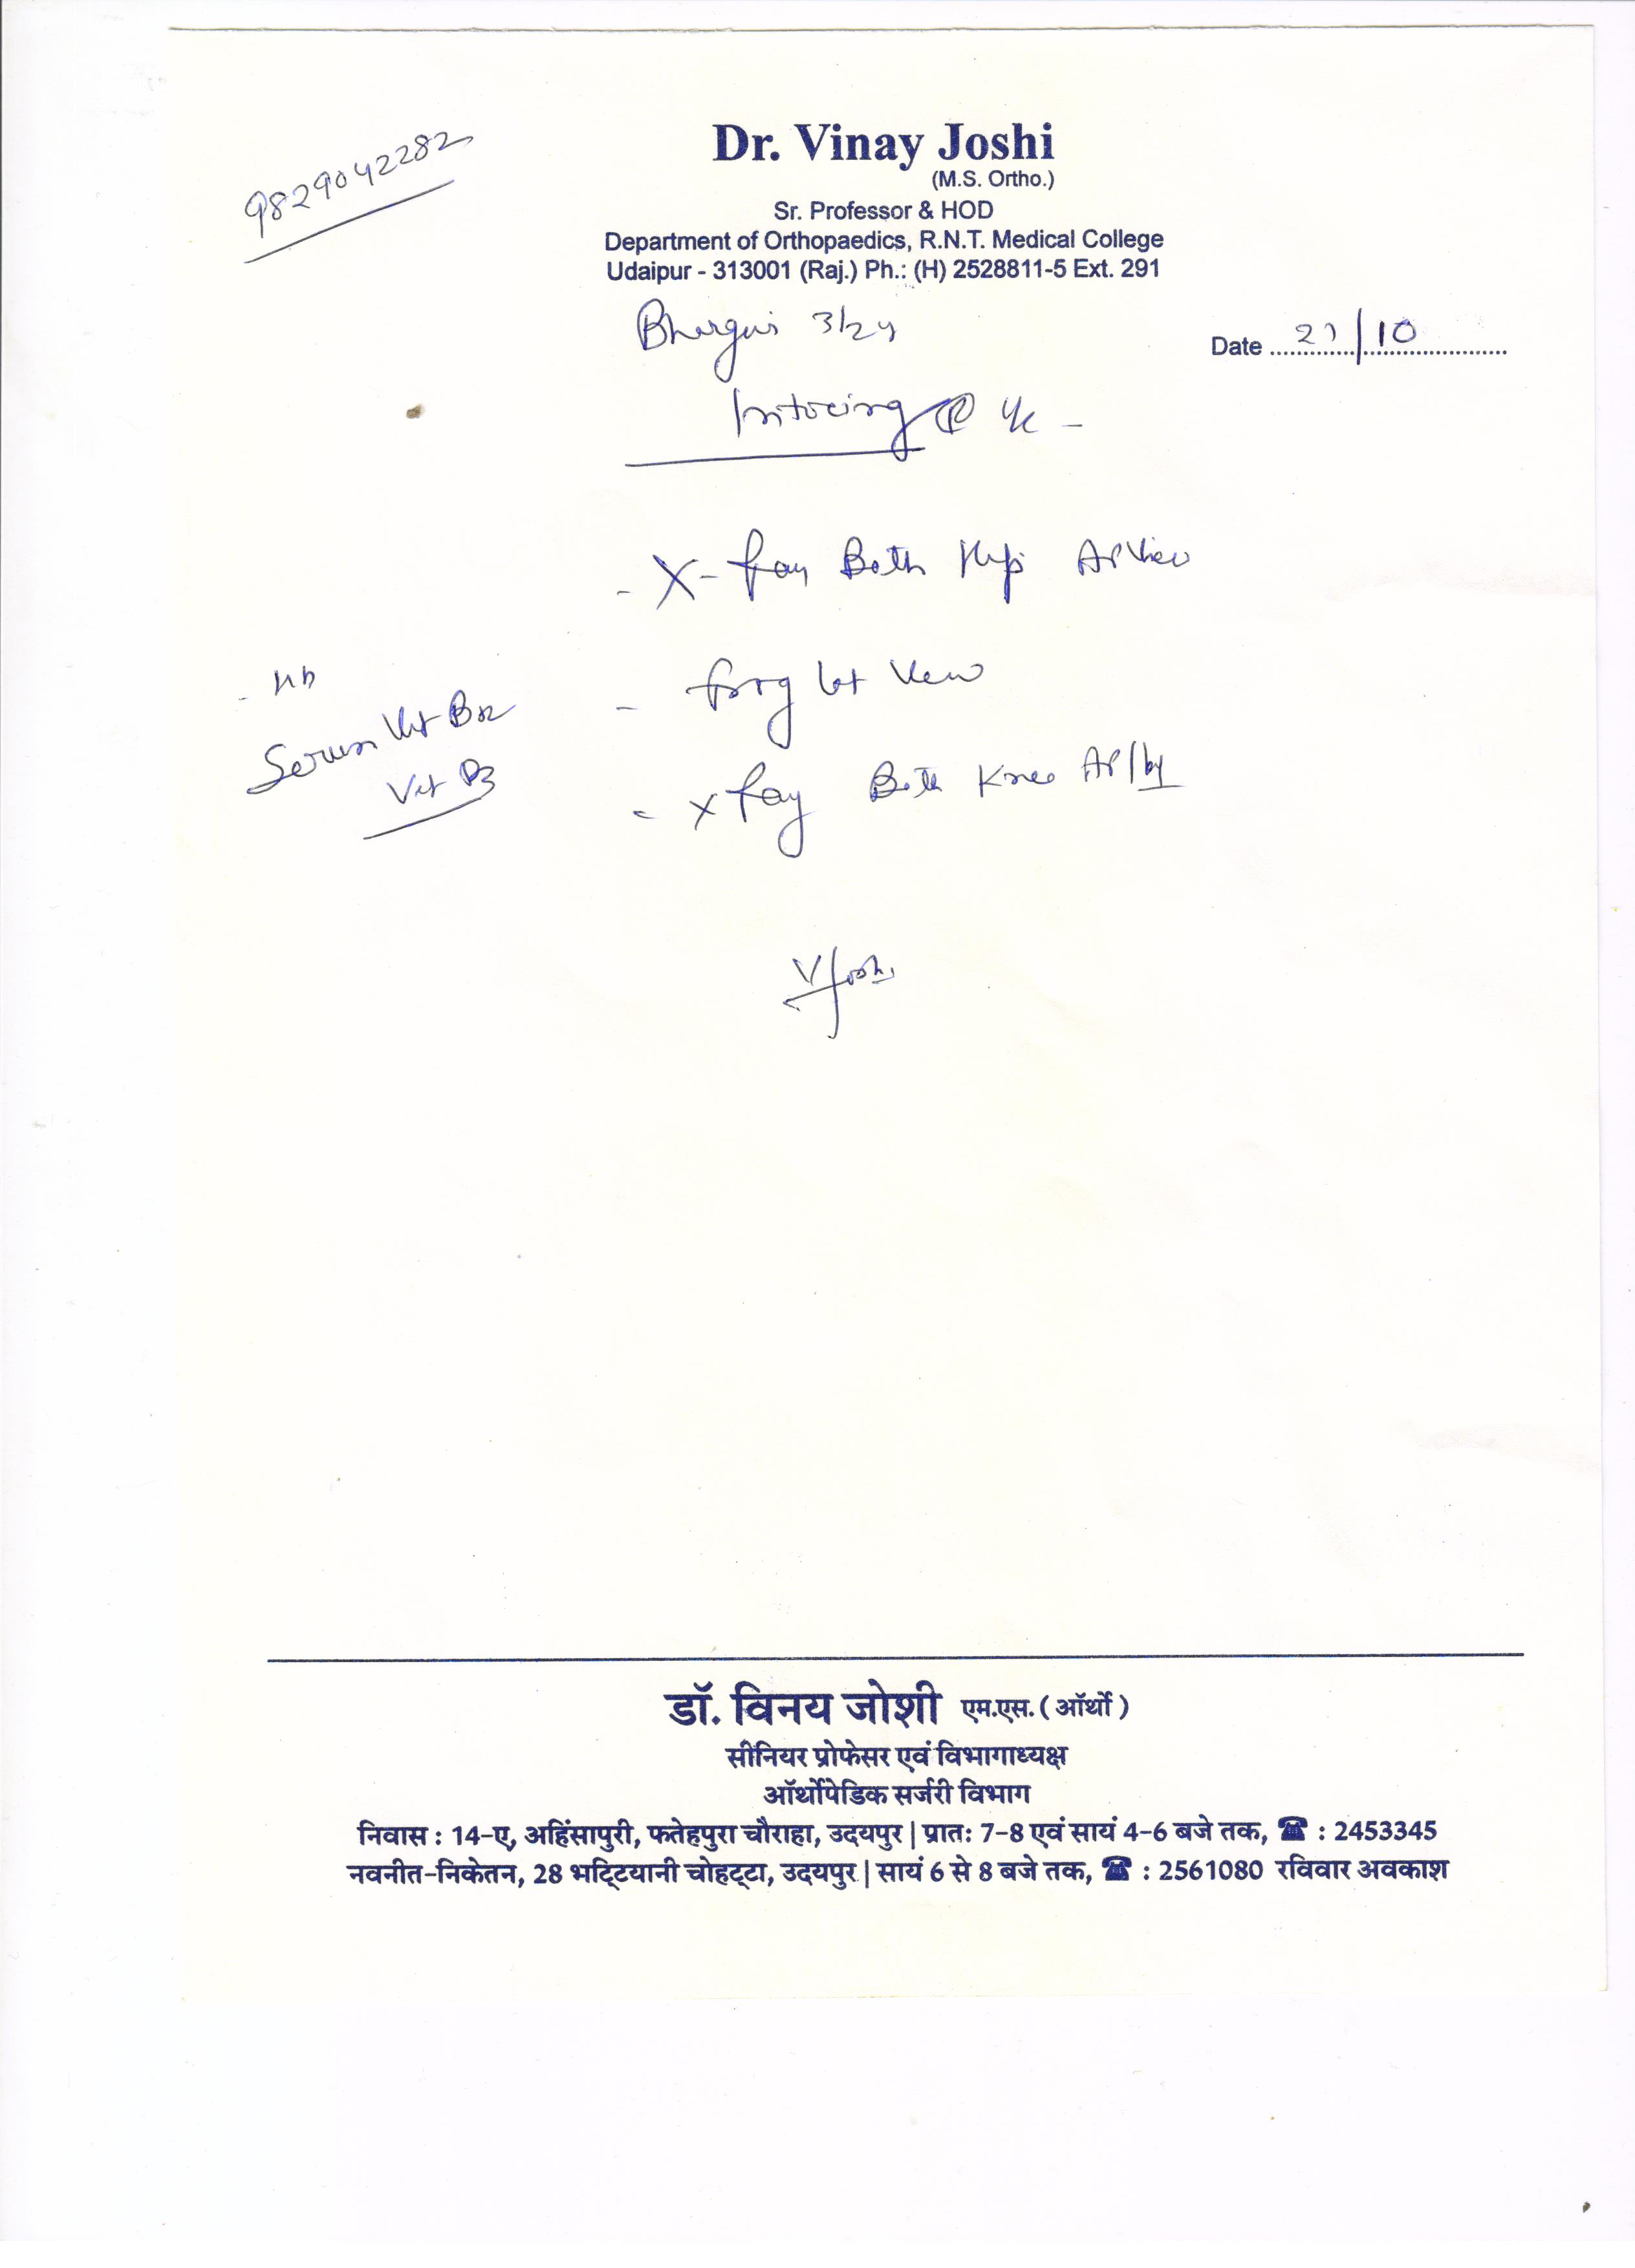 9829042282
Dr. Vinay Joshi
(M.S. Ortho.)
Sr. Professor & HOD
Department of Orthopaedics, R.N.T. Medical College
Udaipur - 313001 (Raj.) Ph.: (H) 2528811-5 Ext. 291
Date 27/10
Intoeing
- X-Ray Both Hip AP View
- Frog lat View
- X Ray Both Knee AP/
- Hb
Serum Vit B12
Vit D3
VJoshi
डॉ. विनय जोशी एम.एस. (ऑर्थो)
सीनियर प्रोफेसर एवं विभागाध्यक्ष
ऑर्थोपेडिक सर्जरी विभाग
निवास : 14-ए, अहिंसापुरी, फतेहपुरा चौराहा, उदयपुर | प्रातः 7-8 एवं सायं 4-6 बजे तक, ☎ : 2453345
नवनीत-निकेतन, 28 भट्टियानी चोहट्टा, उदयपुर | सायं 6 से 8 बजे तक, ☎ : 2561080 रविवार अवकाश